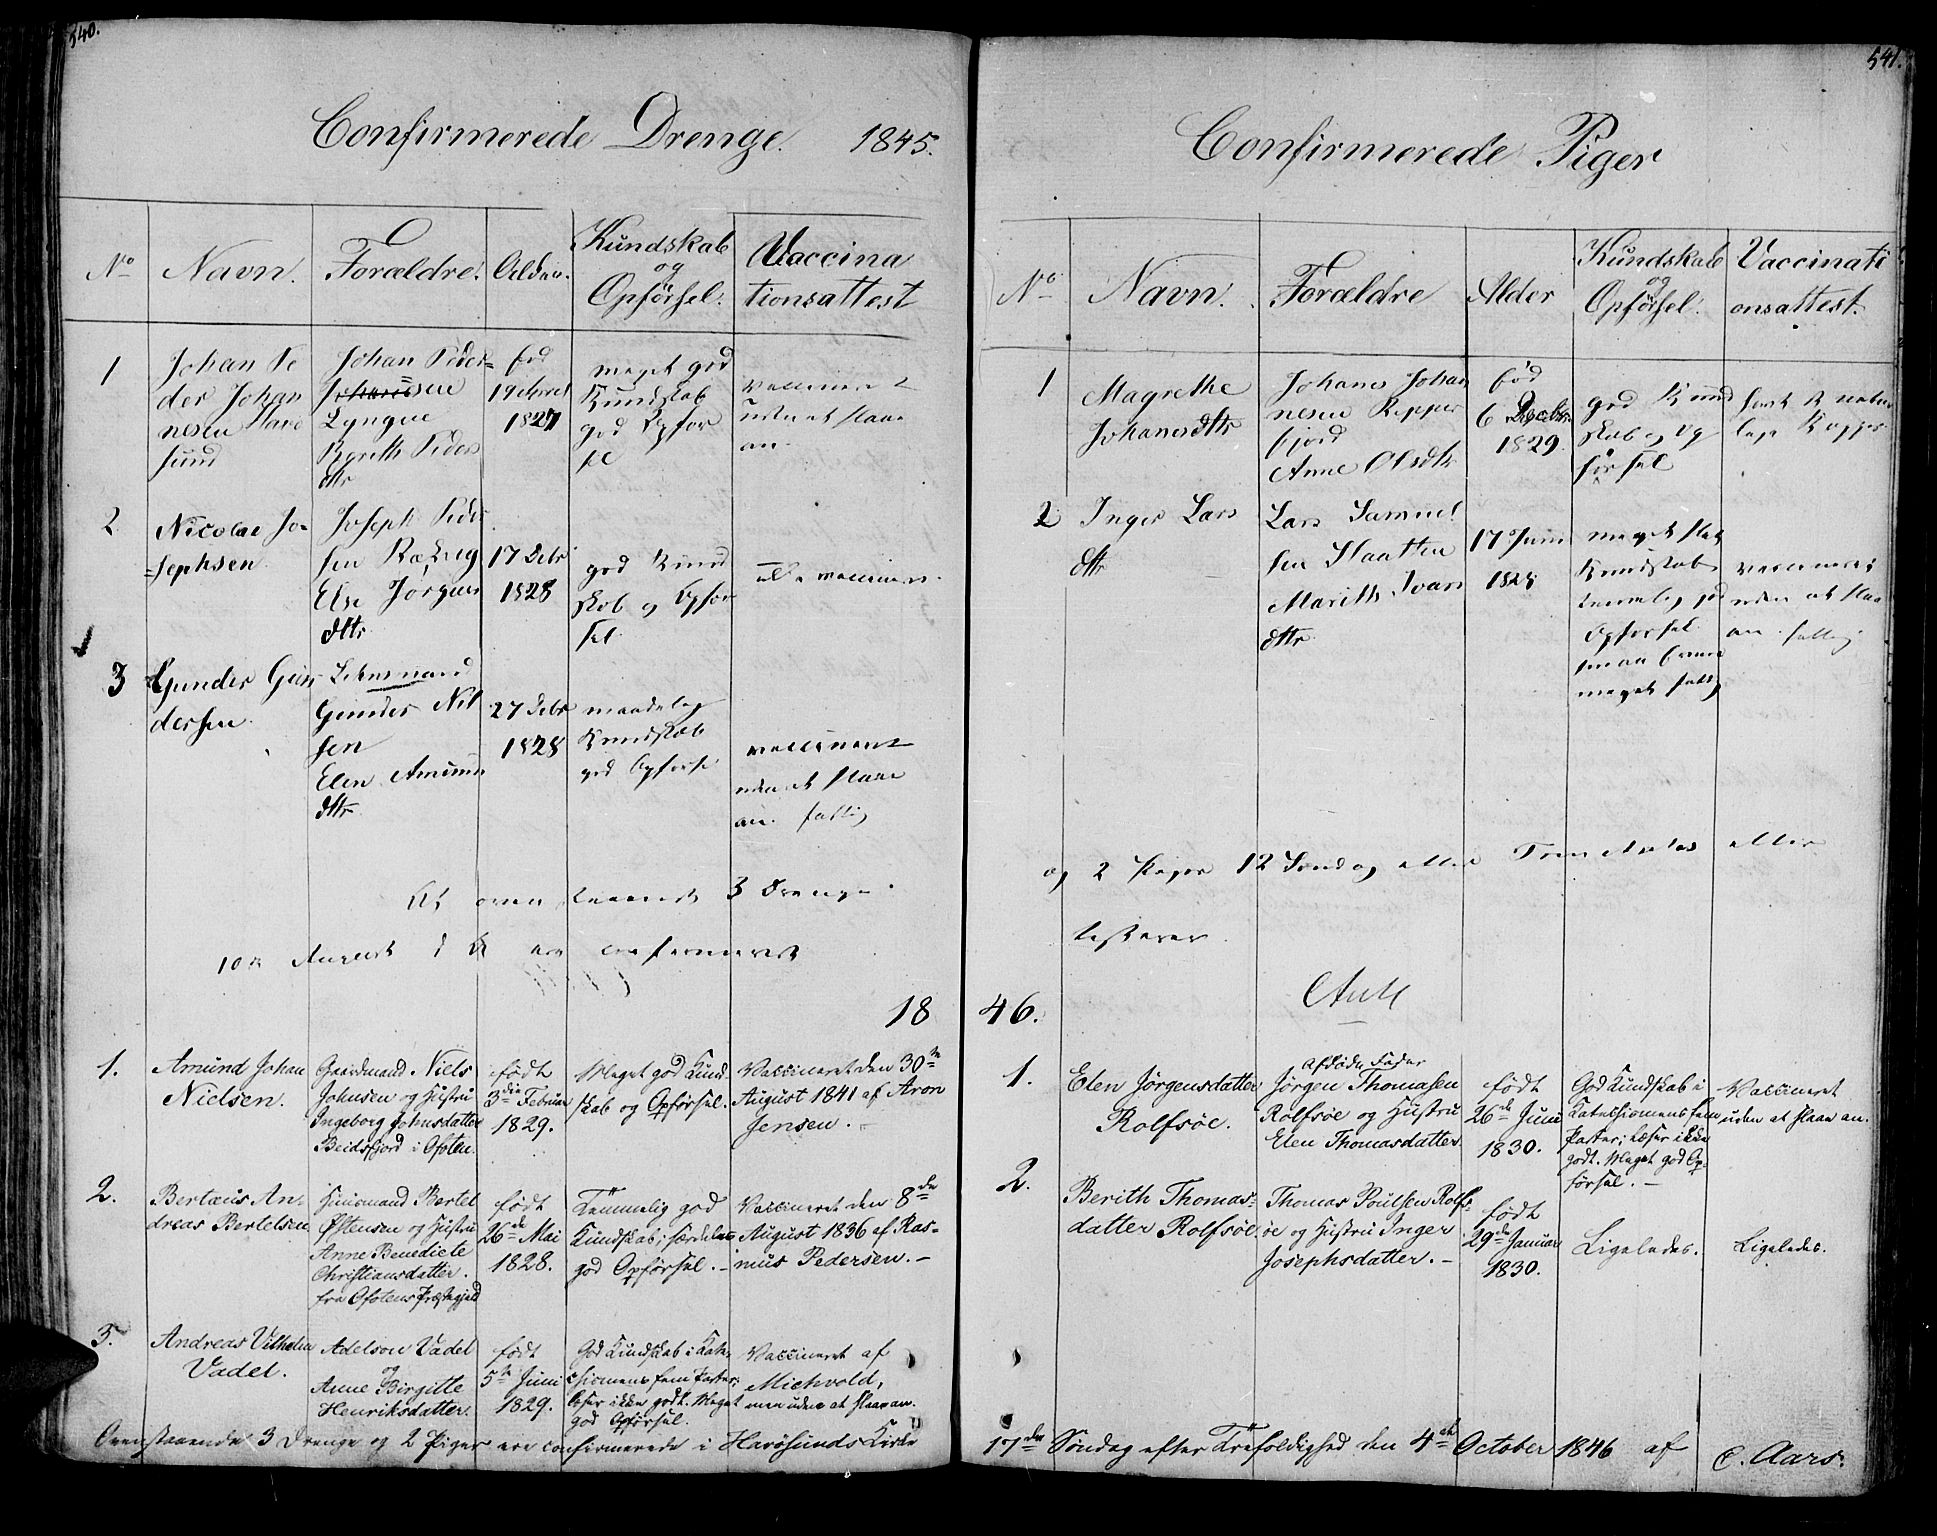 540.
Confirmerede Drenge. 1845.
No
Navn.
Forældre.
Alder.
Kundskab
og
Opførsel.
Vaccina
tionsattest
1
Johan Pe
der Johan
nesen Hav
sund
Johan Peder=
sen
Lyngøe
Berith Peders
dtr
fød
1827
meget god
Kundskab
god Opfør
sel
vaccineret
uden at slaae
an.
2
Nicolai Jo-
=sephsen
Joseph Peder
sen
Else Jørgens
dttr
17 Decbr
1828
god Kund
skab og Opfør
sel
3
Gunder Gun
dersen
Lehnsmand
Gunder Nil
sen
Elen Amunds
dttr
27 Decbr
1828
maadelig
Kundskab
god Opførsel
vaccineret
uden at slaae
an. fattig
At oven staaende 3 Drenge
10de August d. A. ere confirmeret
18
1.
Amund Johan
Nielsen.
Gaardmand Niels
Johnsen og Hustru
Ingeborg Johnsdatter
Beidsfjord i Ofoten.
født
3die Februar
1829.
Meget god Kund-
skab og Opførsel.
Vaccineret den 30te
August 1841 af Aron
Jensen. -
2.
Bertæus An-
dreas Bertelsen
Huusmand Bertel
Østensen og Hustru
Anne Benedicte
Christiansdatter.
fra Ofotens Præstegjeld
født
26de Mai
1828.
Temmelig god
Kundskab; særdeles
god Opførsel. -
Vaccineret den 8de
August 1836 af Ras-
mus Pedersen. -
3.
Andreas Vilhelm
Vadel.
Adelson Vadel
og
Anne Birgitte
Henriksdatter.
født
5te Juni
1829.
God Kundskab i Kate-
chismens fem Parter;
læser ikke godt. Meget
god Opførsel.
Vaccineret af
Michvold,
men uden at slaae an.
Ovenstaaende 3 Drenge og 2 Piger ere confirmerede i Havøsunds Kirke
541.
Confirmerede Piger
No
Navn.
Forældre
Alder
Kundskab
og
Opførsel.
Vaccinati
onsattest.
1
Magrethe
Johanesdtr
Johanes Johan
nesen Repper
fjord
Anne Olsdtr
fød
6 Decbr.
1829.
god Kund
skab og Op
førsel
havt naturlige Kopper
2
Inger Lars
dttr
Lars Samuel
sen Slaatten
Marith Ivars
dttr.
17 Juni
1828
meget slet
Kundskab
temmelig god
Opførsel.
meget fattig
vaccineret
uden at slaa
an. fattig
og 2 Piger 12 Søndag efter Trinitatis
46.
1.
Elen Jørgensdatter
Rolfsøe.
Afdøde Fader
Jørgen Thomasen
Rolfsøe og Hustru
Elen Thomasdatter.
født
26de Juni
1830.
God Kundskab i
Katechismens fem
Parter; læser ikke
godt. Meget god Op-
førsel. -
Vaccineret
uden at slaae an.
2.
Berith Thomas-
datter Rolfsøe.
Thomas Poulsen Rolfs-
øe og Hustru Inger
Josephsdatter. -
født
29de Januar
1830.
Ligeledes.
Ligeledes.
17de Søndag efter Trefoldighed den 4de October 1846 af C. Aars.